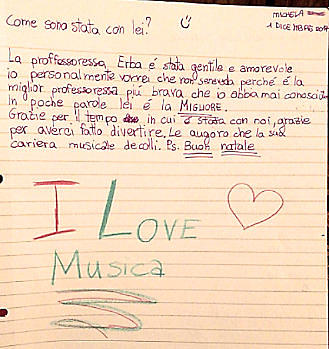 MICHELA
1 DICEMBRE 2017
Come sono stata con lei?
La proffessoressa Erba é stata gentile e amorevole
io personalmente vorrei che non se ne vada perché é la
miglior professoressa più brava che io abba mai conosciuto
In poche parole lei é la MIGLIORE.
Grazie per il tempo in cui é stata con noi, grazie
per averci fatto divertire. Le auguro che la sua
cariera musicale decolli. Ps. Buon natale
I LOVE
Musica